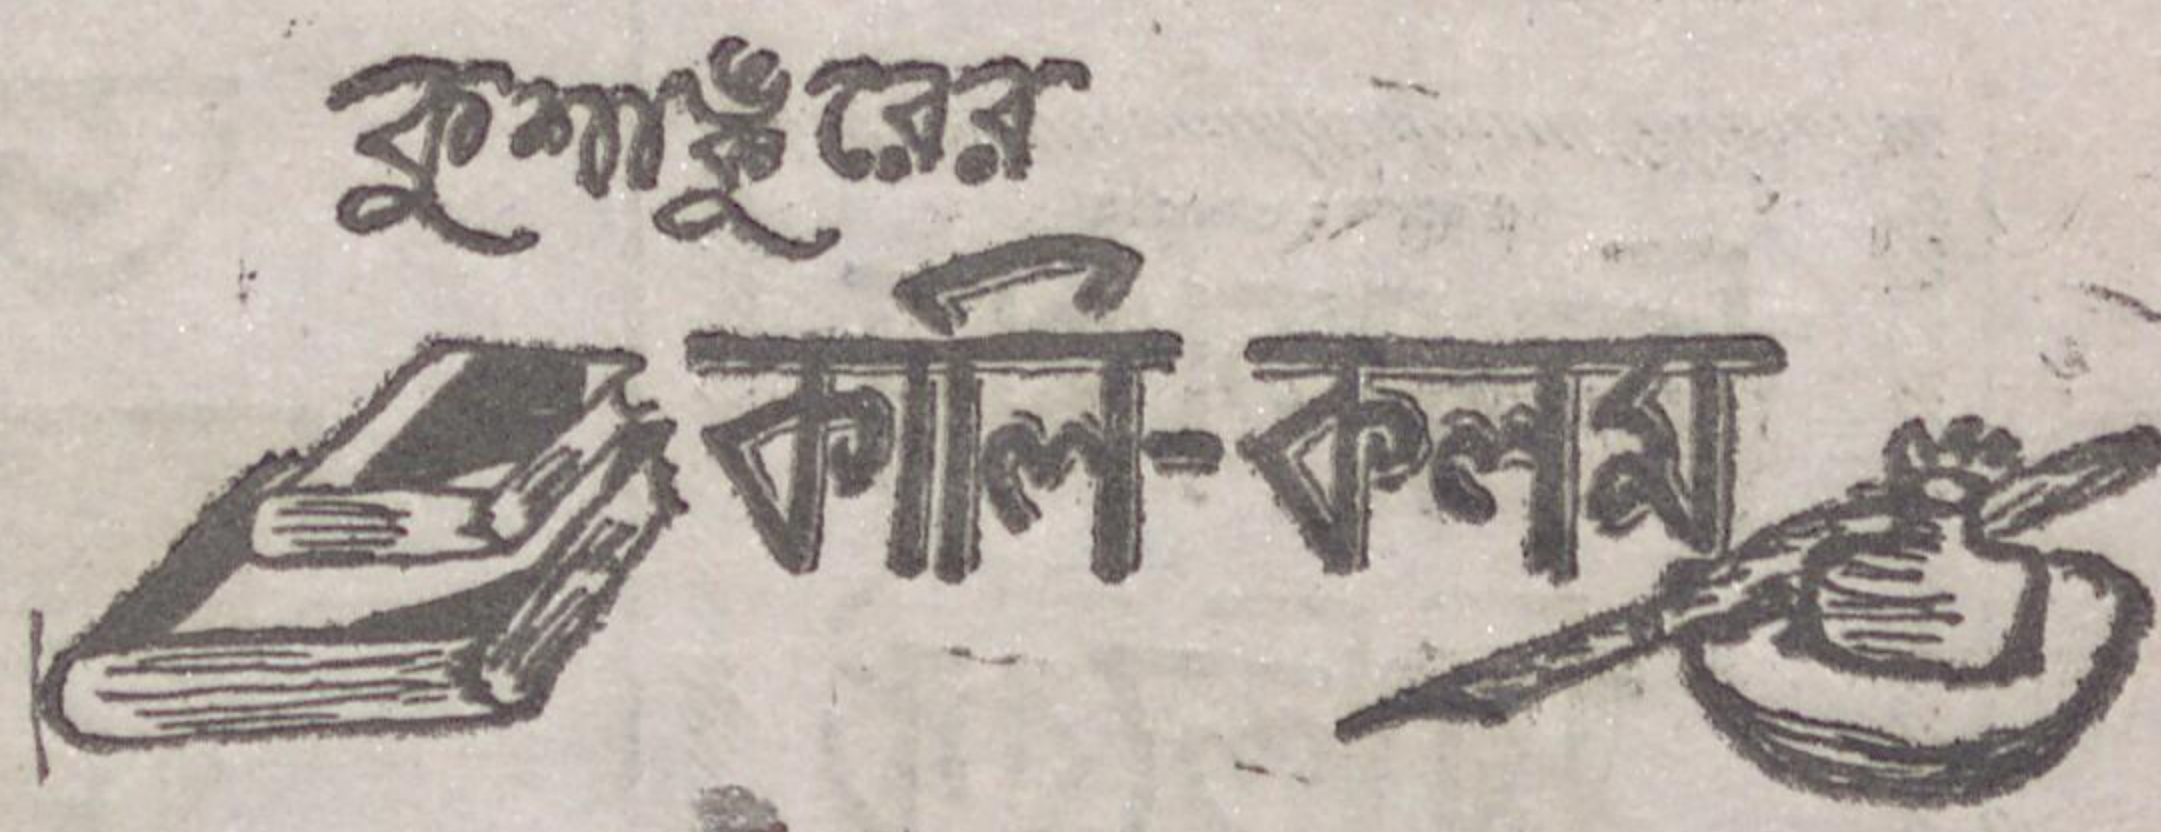 কুশাঙ্কুরের
কালি-কলম